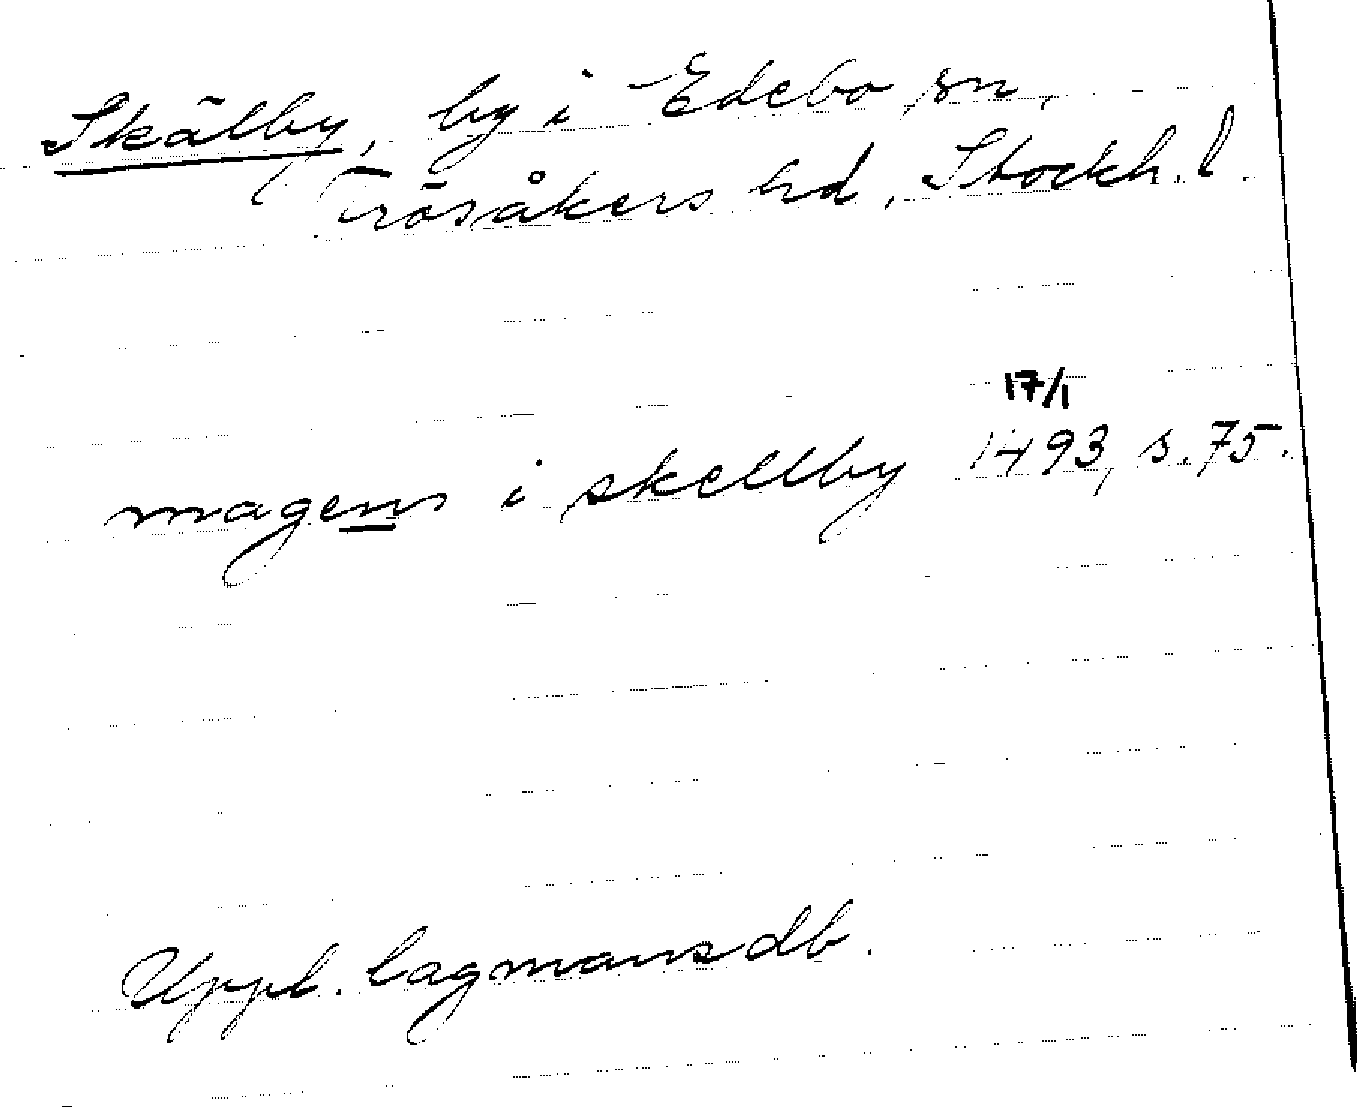 Skälby, by i Edebo sn,
Frösåkers hd, Stockh. l.
17/1
magens i skellby 1493, s. 75.
Uppl. lagmansdb.